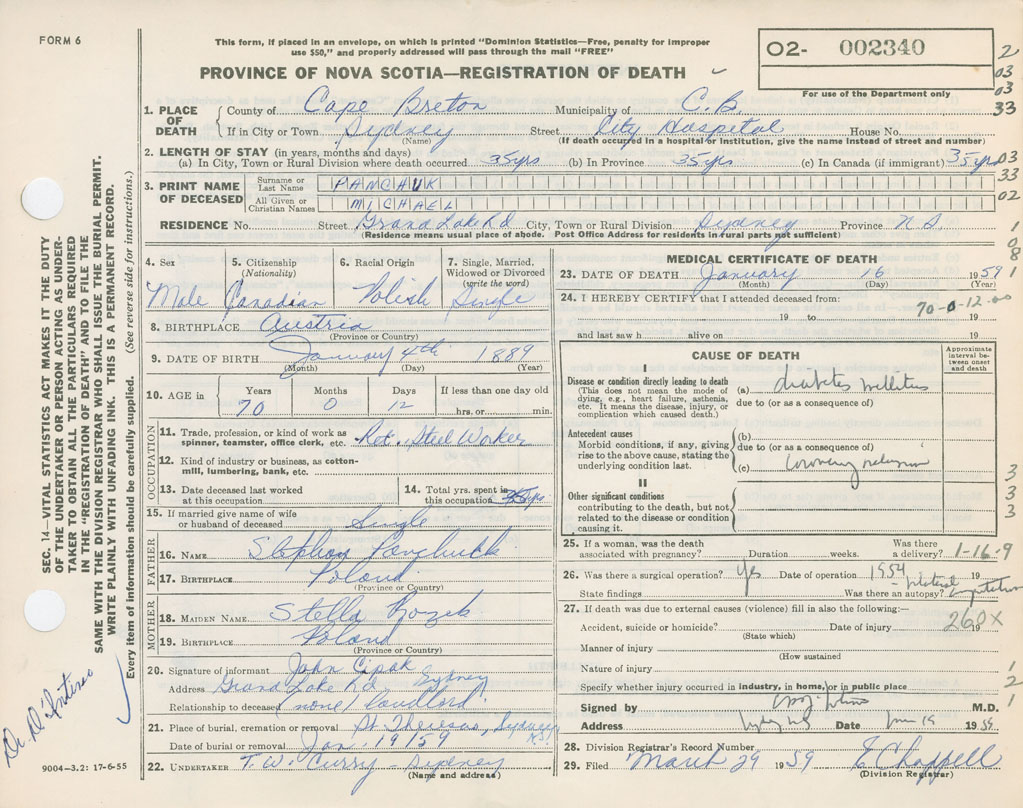 FORM 6
This form, if placed in an envelope, on which is printed "Dominion Statistics—Free, penalty for improper
use $50," and properly addressed will pass through the mail "FREE"
PROVINCE OF NOVA SCOTIA—REGISTRATION OF DEATH
O2- 002340
For use of the Department only
2
03
03
33
1. PLACE OF DEATH
County of Cape Breton Municipality of C.B.
If in City or Town Sydney Street City Hospital House No.
(Name) (If death occurred in a hospital or institution, give the name instead of street and number)
2. LENGTH OF STAY (in years, months and days)
(a) In City, Town or Rural Division where death occurred 35yrs (b) In Province 35yrs (c) In Canada (if immigrant) 35yrs
03
33
02
3. PRINT NAME OF DECEASED
Surname or Last Name PANCHUK
All Given or Christian Names MICHAEL
RESIDENCE No. Street Grand Lake Rd City, Town or Rural Division Sydney Province N.S.
(Residence means usual place of abode. Post Office Address for residents in rural parts not sufficient)
1
0
8
1
4. Sex Male
5. Citizenship (Nationality) Canadian
6. Racial Origin Polish
7. Single, Married, Widowed or Divorced (write the word) Single
8. BIRTHPLACE Austria
(Province or Country)
9. DATE OF BIRTH January 4th 1889
(Month) (Day) (Year)
10. AGE in Years 70 Months 0 Days 12 If less than one day old hrs. or min.
OCCUPATION
11. Trade, profession, or kind of work as spinner, teamster, office clerk, etc. Ret. Steel Worker
12. Kind of industry or business, as cotton-mill, lumbering, bank, etc.
13. Date deceased last worked at this occupation
14. Total yrs. spent in this occupation
15. If married give name of wife or husband of deceased Single
FATHER
16. NAME Stephen
17. BIRTHPLACE Poland
(Province or Country)
MOTHER
18. MAIDEN NAME Stella
19. BIRTHPLACE Poland
(Province or Country)
20. Signature of informant John Cipak
Address Grand Lake Rd Sydney
Relationship to deceased (none) landlord
21. Place of burial, cremation or removal St. Theresas, Sydney N.S.
Date of burial or removal Jan. 19 1959
22. UNDERTAKER T. W. Curry - Sydney
(Name and address)
MEDICAL CERTIFICATE OF DEATH
23. DATE OF DEATH January 16 1959
(Month) (Day) (Year)
24. I HEREBY CERTIFY that I attended deceased from:
70-0-12
19 to 19
and last saw h alive on 19
CAUSE OF DEATH
Approximate interval between onset and death
I
Disease or condition directly leading to death
(This does not mean the mode of dying, e.g., heart failure, asthenia, etc. It means the disease, injury, or complication which caused death.)
(a) diabetes mellitus
due to (or as a consequence of)
Antecedent causes
Morbid conditions, if any, giving rise to the above cause, stating the underlying condition last.
(b)
due to (or as a consequence of)
(c) coronary
II
Other significant conditions contributing to the death, but not related to the disease or condition causing it.
3
3
3
25. If a woman, was the death associated with pregnancy? Duration weeks. Was there a delivery? 1-16-9
26. Was there a surgical operation? yes Date of operation 1954 19
State findings Was there an autopsy?
bilateral amputation
27. If death was due to external causes (violence) fill in also the following:—
Accident, suicide or homicide? Date of injury 19
(State which)
260X
Manner of injury
(How sustained)
Nature of injury
Specify whether injury occurred in industry, in home, or in public place
1
2
1
Signed by M.D.
Address Sydney NS Date 19 1959
28. Division Registrar's Record Number
29. Filed March 29 1959 E Chappell
(Division Registrar)
SEC. 14—VITAL STATISTICS ACT MAKES IT THE DUTY
OF THE UNDERTAKER OR PERSON ACTING AS UNDER-
TAKER TO OBTAIN ALL THE PARTICULARS REQUIRED
IN THE "REGISTRATION OF DEATH" AND TO FILE THE
SAME WITH THE DIVISION REGISTRAR WHO SHALL ISSUE THE BURIAL PERMIT.
WRITE PLAINLY WITH UNFADING INK. THIS IS A PERMANENT RECORD.
Every item of information should be carefully supplied. (See reverse side for instructions.)
Dr D'Intino
9004-3.2: 17-6-55